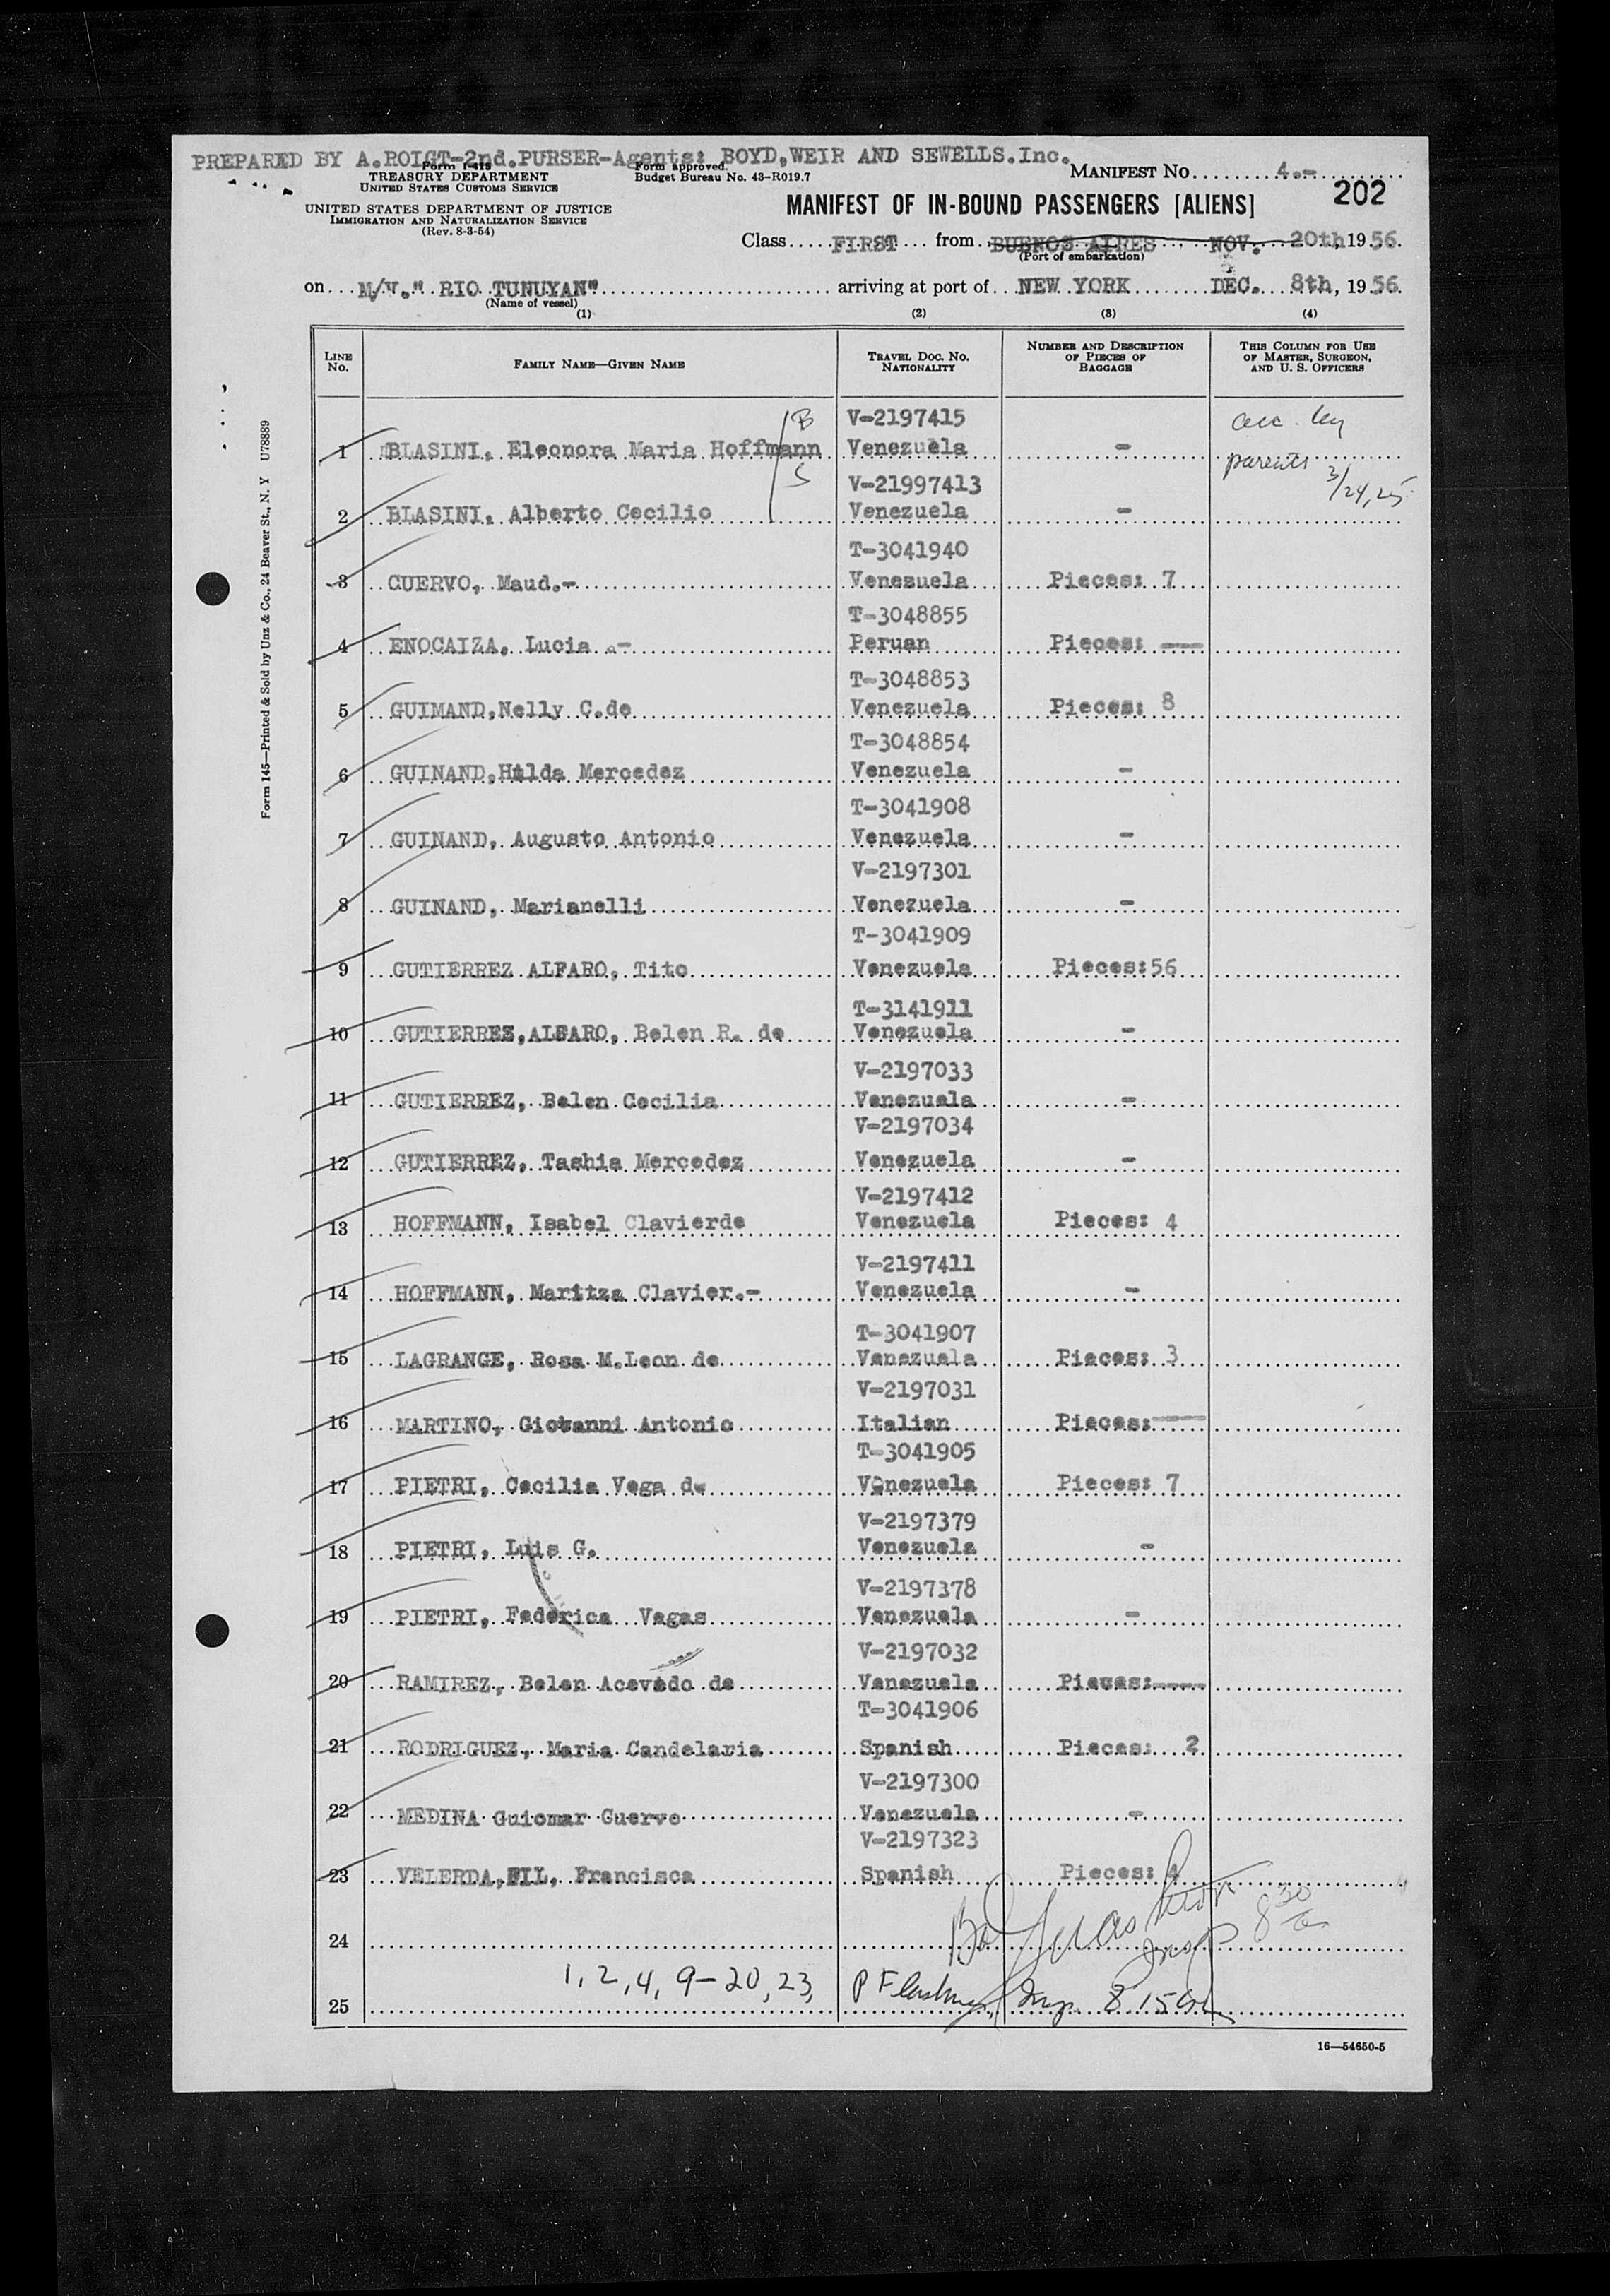 PREPARED BY A.ROIGT-2nd.PURSER-Agents: BOYD,WEIR AND SEWELLS.Inc.
Form I-418
TREASURY DEPARTMENT
UNITED STATES CUSTOMS SERVICE
Form approved.
Budget Bureau No. 43-R019.7
MANIFEST No. 4.-
202
UNITED STATES DEPARTMENT OF JUSTICE
IMMIGRATION AND NATURALIZATION SERVICE
(Rev. 8-3-54)
MANIFEST OF IN-BOUND PASSENGERS [ALIENS]
Class FIRST from BUENOS AIRES NOV. 20th, 1956.
(Port of embarkation)
on M/V." RIO TUNUYAN" arriving at port of NEW YORK DEC. 8th, 1956.
(Name of vessel)
(1) (2) (3) (4)
LINE No. FAMILY NAME—GIVEN NAME TRAVEL DOC. No. NATIONALITY NUMBER AND DESCRIPTION OF PIECES OF BAGGAGE THIS COLUMN FOR USE OF MASTER, SURGEON, AND U. S. OFFICERS
B V-2197415 acc. by
1 BLASINI, Eleonora Maria Hoffmann Venezuela - parents
S V-21997413 3/24,25
2 BLASINI, Alberto Cecilio Venezuela -
T-3041940
3 CUERVO, Maud.- Venezuela Pieces: 7
T-3048855
4 ENOCAIZA, Lucia .- Peruan Pieces: ---
T-3048853
5 GUIMAND,Nelly C.de Venezuela Pieces: 8
T-3048854
6 GUINAND,Hilda Mercedez Venezuela -
T-3041908
7 GUINAND, Augusto Antonio Venezuela -
V-2197301
8 GUINAND, Marianelli Venezuela -
T-3041909
9 GUTIERREZ ALFARO, Tito Venezuela Pieces:56
T-3141911
10 GUTIERREZ,ALFARO, Belen R. de Venezuela -
V-2197033
11 GUTIERREZ, Belen Cecilia Venezuela -
V-2197034
12 GUTIERREZ, Tashia Mercedez Venezuela -
V-2197412
13 HOFFMANN, Isabel Clavierde Venezuela Pieces: 4
V-2197411
14 HOFFMANN, Maritza Clavier.- Venezuela -
T-3041907
15 LAGRANGE, Rosa M.Leon de Venezuela Pieces: 3
V-2197031
16 MARTINO, Giovanni Antonio Italian Pieces:---
T-3041905
17 PIETRI, Cecilia Vega de Venezuela Pieces: 7
V-2197379
18 PIETRI, Luis G. Venezuela -
V-2197378
19 PIETRI, Federica Vagas Venezuela -
V-2197032
20 RAMIREZ, Belen Acevedo de Venezuela Pieces:----
T-3041906
21 RODRIGUEZ, Maria Candelaria Spanish Pieces: 2
V-2197300
22 MEDINA Guiomar Cuervo Venezuela -
V-2197323
23 VELERDA,FIL, Francisca Spanish Pieces: 4
24
1, 2, 4, 9-20, 23,
25
16—54650-5
Form 145—Printed & Sold by Unz & Co., 24 Beaver St., N. Y U78889